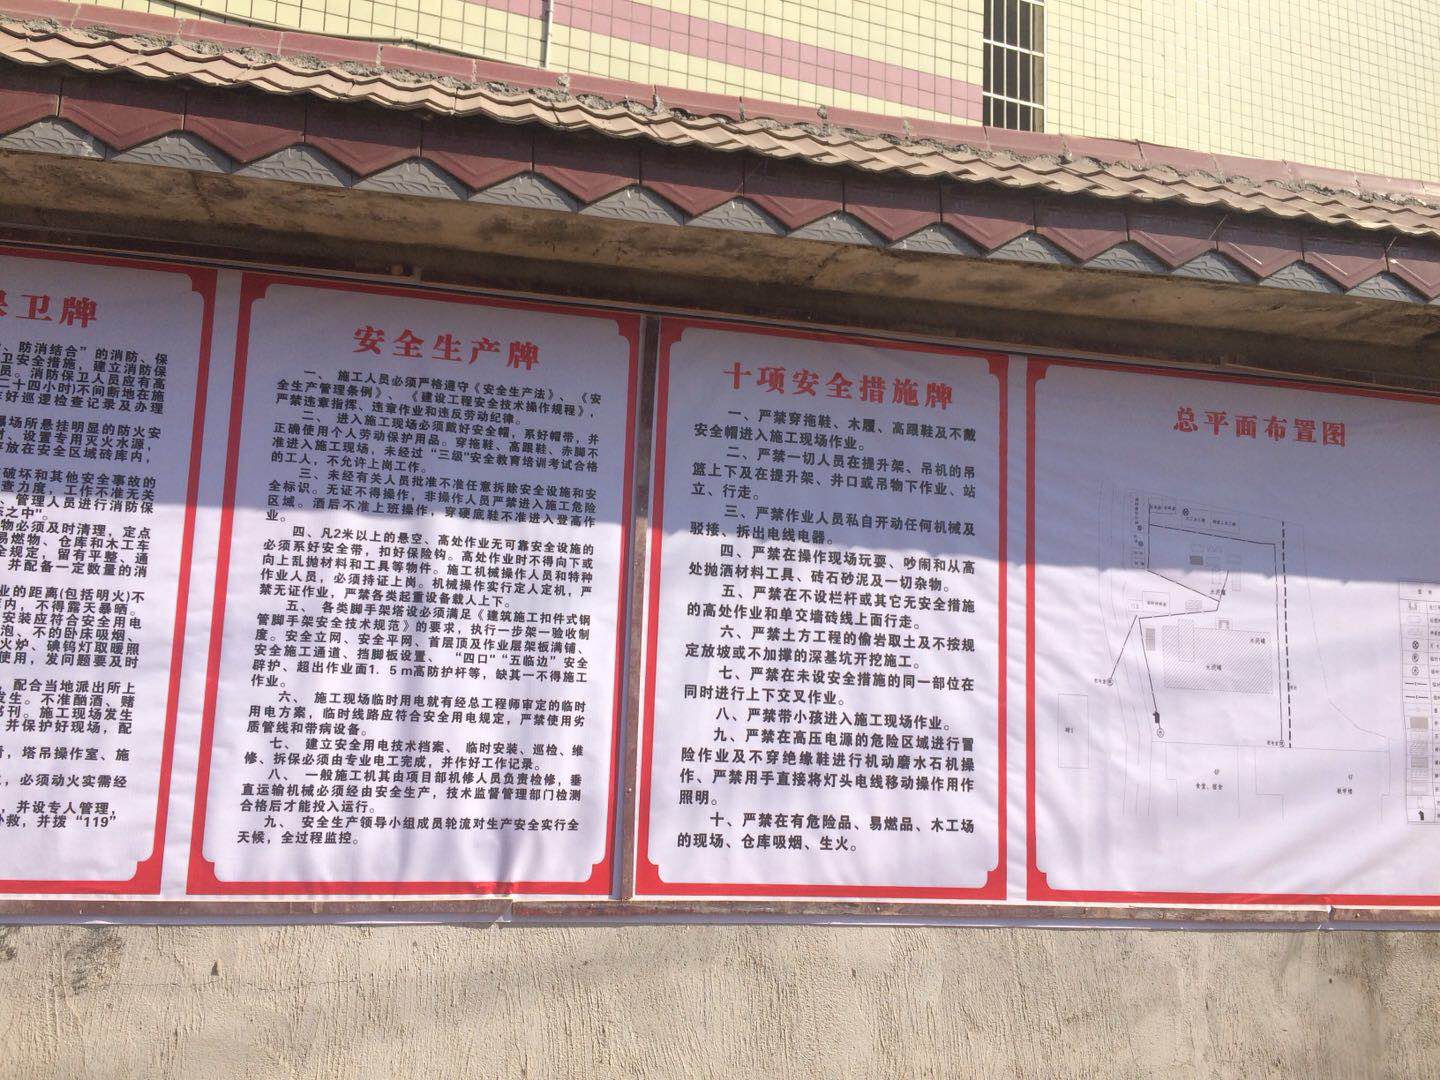 卫牌
防消结合”的消防、保
卫安全措施，建立消防保
员。消防保卫人员应有高
二十四小时)不间断地在施
作好巡逻检查记录及办理
场所悬挂明显的防火安
设置专用灭火水源，
存放在安全区域砖库内，
破坏和其他安全事故的
查力度，工作不准无关
管理人员进行消防保
态之中”。
物必须及时清理，定点
易燃物、仓库和木工车
全规定，留有平整、通
并配备一定数量的消
业的距离(包括明火)不
库内，不得露天暴晒。
安装应符合安全用电
泡、不的卧床吸烟、
火炉、碘钨灯取暖照
使用，发问题要及时
配合当地派出所上
发生。不准酗酒、赌
书刊。施工现场发生
并保护好现场，配
塔吊操作室、施
必须动火实需经
并设专人管理，
扑救，并拨“119”
安全生产牌
一、 施工人员必须严格遵守《安全生产法》、《安
全生产管理条例》、《建设工程安全技术操作规程》，
严禁违章指挥、违章作业和违反劳动纪律。
二、 进入施工现场必须戴好安全帽，系好帽带，并
正确使用个人劳动保护用品。穿拖鞋、高跟鞋、赤脚不
准进入施工现场，未经过“三级”安全教育培训考试合格
的工人，不允许上岗工作。
三、未经有关人员批准不准任意拆除安全设施和安
全标识。无证不得操作，非操作人员严禁进入施工危险
区域。酒后不准上班操作，穿硬底鞋不准进入登高作
业。
四、凡2米以上的悬空、高处作业无可靠安全设施的
必须系好安全带，扣好保险钩。高处作业时不得向下或
向上乱抛材料和工具等物件。施工机械操作人员和特种
作业人员，必须持证上岗。机械操作实行定人定机，严
禁无证作业，严禁各类起重设备载人上下。
五、 各类脚手架塔设必须满足《建筑施工扣件式钢
管脚手架安全技术规范》的要求，执行一步架一验收制
度。安全立网、安全平网、首层顶及作业层架板满铺、
安全施工通道、挡脚板设置、 “四口”“五临边”安全
辟护、超出作业面1.5m高防护杆等，缺其一不得施工
作业。
六、 施工现场临时用电就有经总工程师审定的临时
用电方案，临时线路应符合安全用电规定，严禁使用劣
质管线和带病设备。
七、 建立安全用电技术档案、临时安装、巡检、维
修、拆保必须由专业电工完成，并作好工作记录。
八、 一般施工机其由项目部机修人员负责检修，垂
直运输机械必须经由安全生产，技术监督管理部门检测
合格后才能投入运行。
九、 安全生产领导小组成员轮流对生产安全实行全
天候，全过程监控。
十项安全措施牌
一、严禁穿拖鞋、木履、高跟鞋及不戴
安全帽进入施工现场作业。
二、严禁一切人员在提升架、吊机的吊
篮上下及在提升架、井口或吊物下作业、站
立、行走。
三、严禁作业人员私自开动任何机械及
驳接、拆出电线电器。
四、严禁在操作现场玩耍、吵闹和从高
处抛洒材料工具、砖石砂泥及一切杂物。
五、严禁在不设栏杆或其它无安全措施
的高处作业和单交墙砖线上面行走。
六、严禁土方工程的偷岩取土及不按规
定放坡或不加撑的深基坑开挖施工。
七、严禁在未设安全措施的同一部位在
同时进行上下交叉作业。
八、严禁带小孩进入施工现场作业。
九、严禁在高压电源的危险区域进行冒
险作业及不穿绝缘鞋进行机动磨水石机操
作、严禁用手直接将灯头电线移动操作用作
照明。
十、严禁在有危险品、易燃品、木工场
的现场、仓库吸烟、生火。
总平面布置图